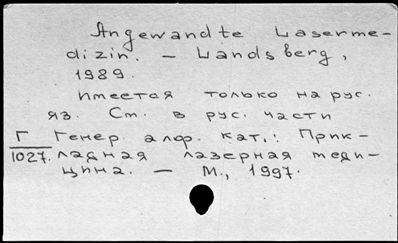 Angewandte Laserme-
dizin. – Landsberg,
1989.
Имеется только на рус.
яз. См. в рус. части
Г Генер. алф. кат.: Прик-
1027. ладная лазерная меди-
цина. – М., 1997.